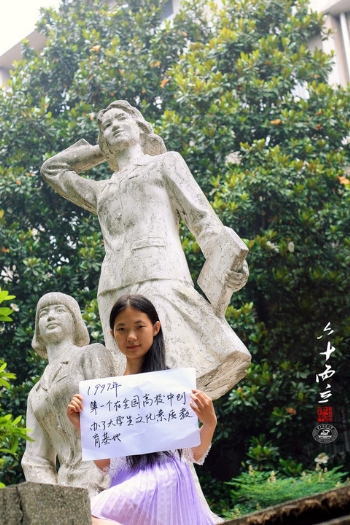 1997年
第一个在全国高校中创
办了大学生文化素质教
育基地
六十而立